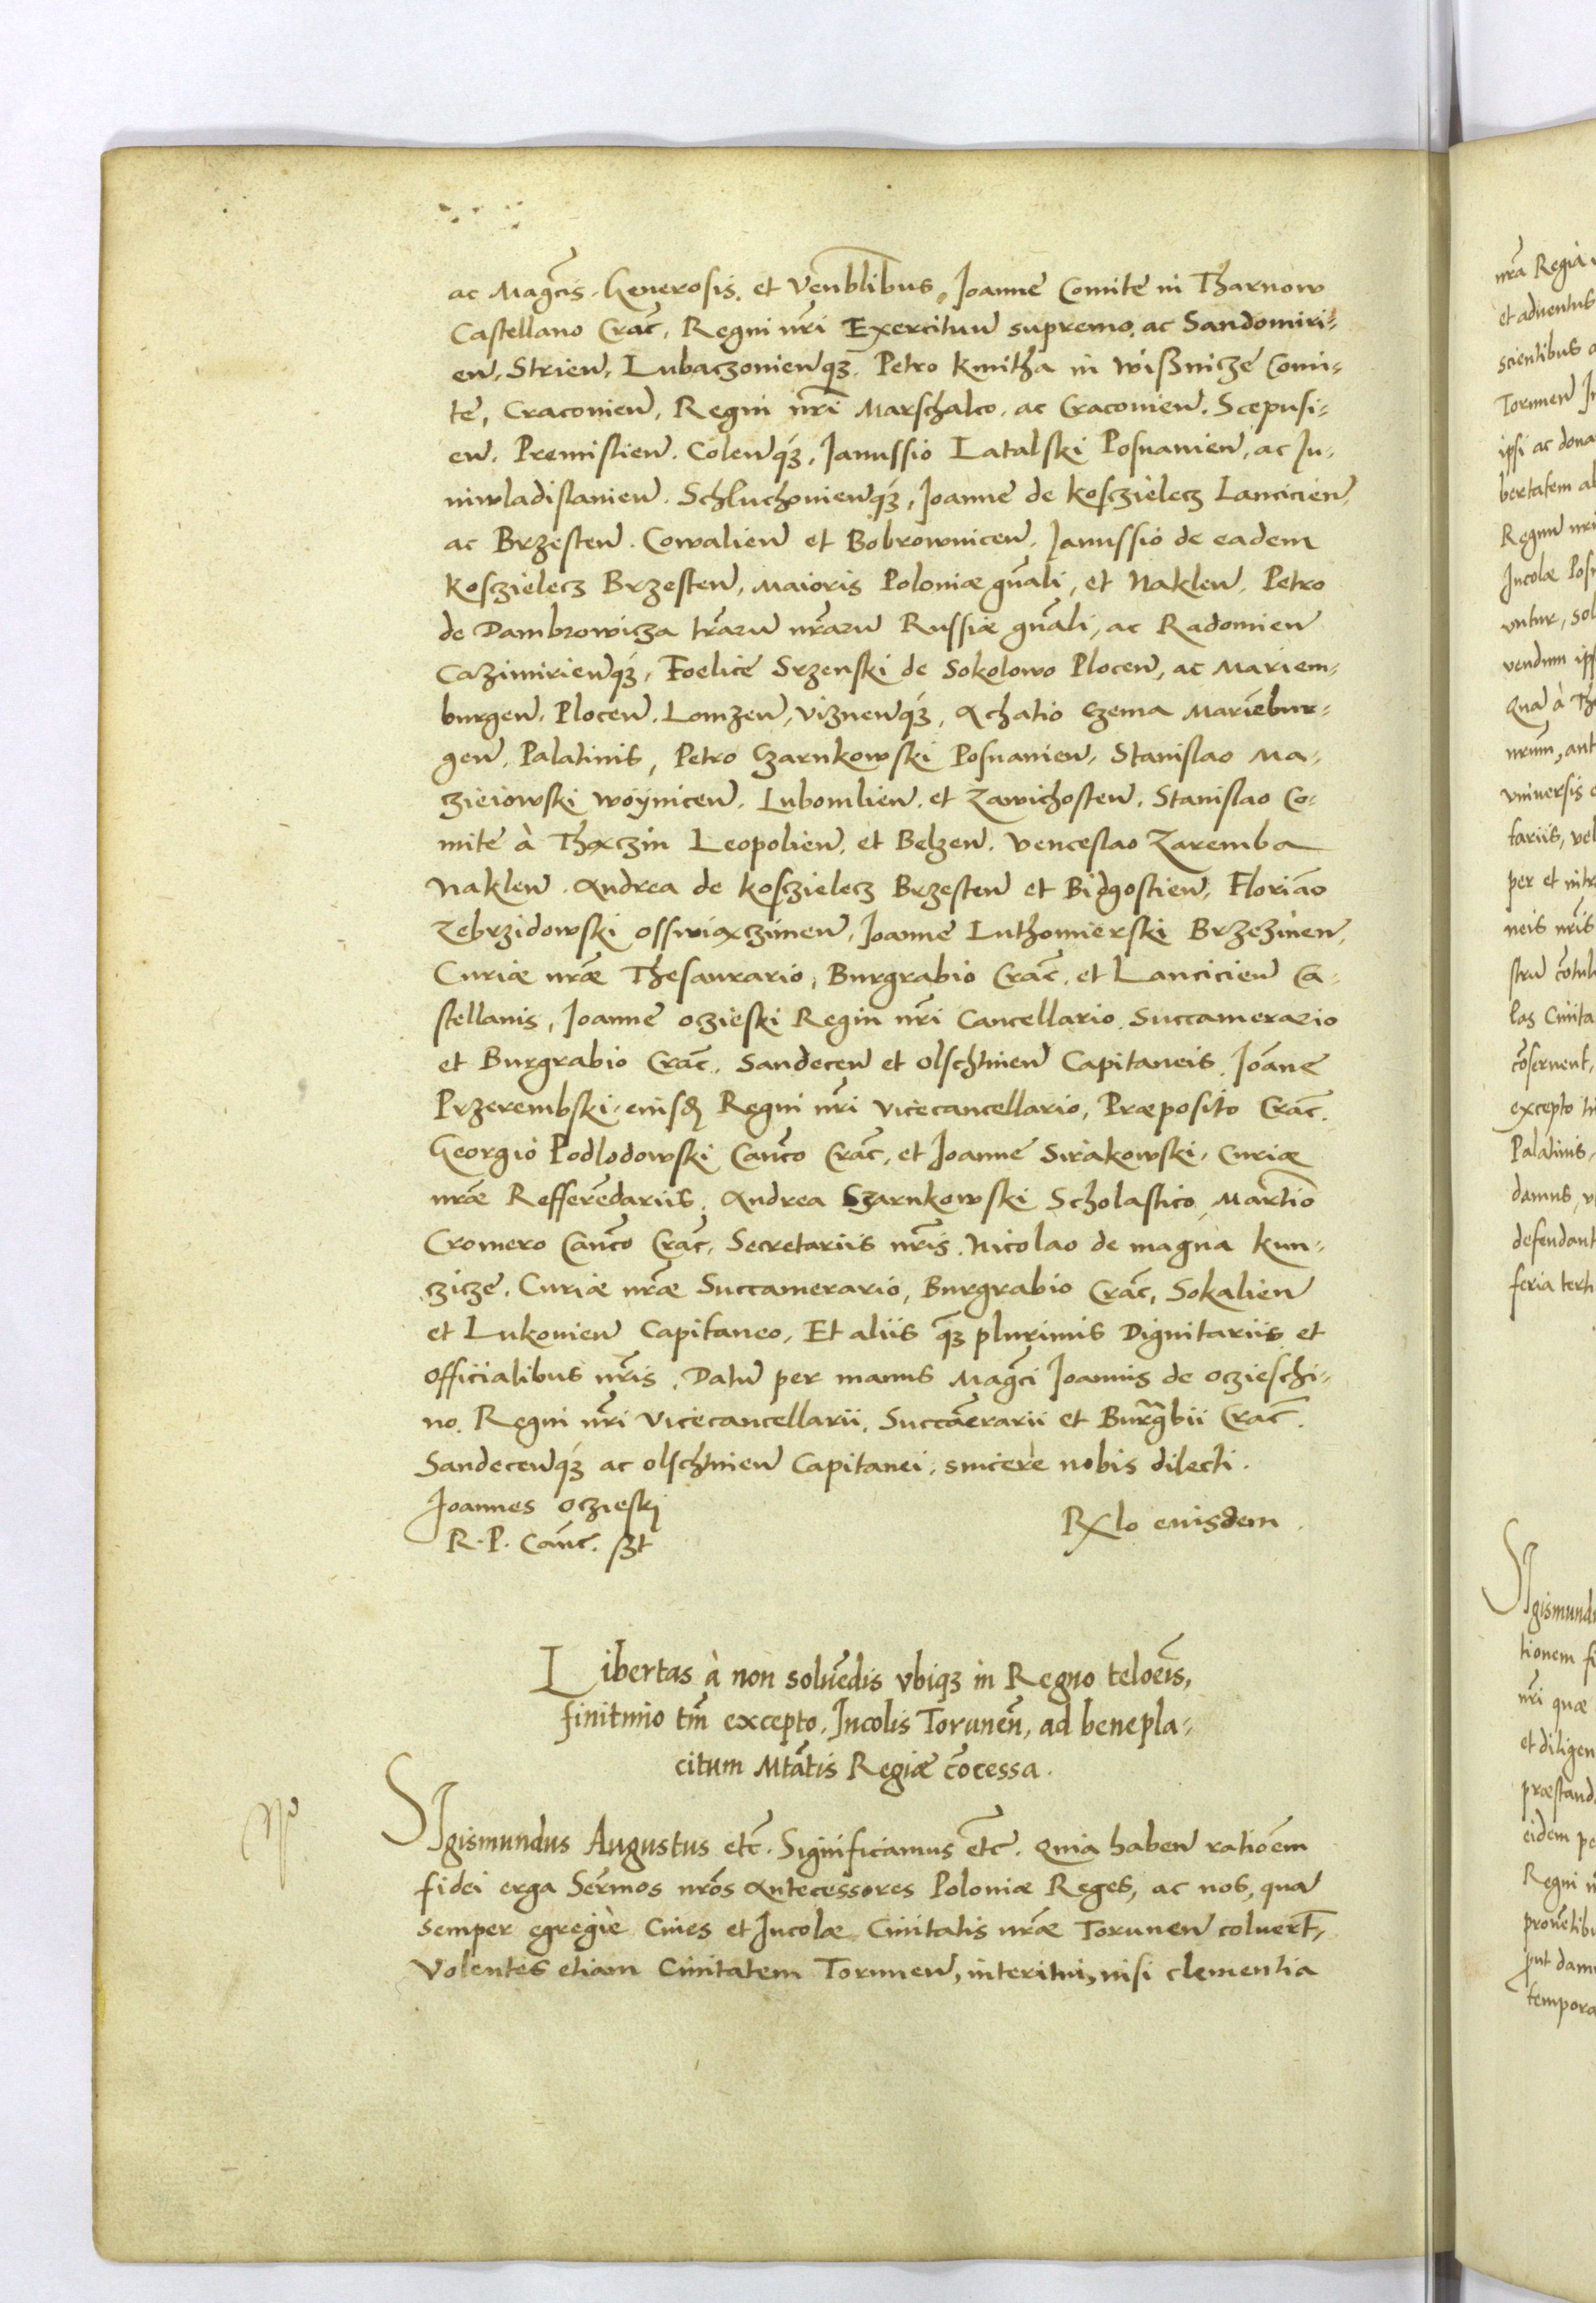 ac Magcis. Generosis. et Venblibus. Joanne Comite in Tharnow
Castellano Crac. Regni nri Exercituu supremo. ac Sandomiri-
en. Strien. Lubaczonienqz. Petro Kmitha in Wißnicze Comi-
te, Cracouien. Regni nri Marschalco. ac Cracouien. Scepusi-
en. Premislien. Colenqz. Janussio Latalski Posnanien. ac Ju-
niwladislauien. Schluchouienqz, Joanne de Kosczielecz Lancicien
ac Brzesten. Cowalien et Bobrownicen. Janussio de eadem
Kosczielecz Brzesten, Maioris Poloniæ gnali, et Naklen. Petro
de Dambrowicza traru nraru Russiæ gnali, ac Radomien
Cazimirienqz, Foelice Srzenski de Sokolowo Plocen, ac Mariem-
burgen. Plocen. Lomzen, Viznenqz, Achatio Czema Mariebur-
gen. Palatinis, Petro Czarnkowski Posnanien. Stanislao Ma-
czieiowski Woynicen. Lubomlien. et Zawichosten. Stanislao Co-
mite à Thęczin Leopolien. et Belzen. Venceslao Zaremba
Naklen. Andrea de Kosczielecz Brzesten et Bidgostien. Floriao
Zebrzidowski Osswięczimen, Joanne Luthomierski Brzezinen,
Curiæ nræ Thesaurario, Burgrabio Crac. et Lancicien Ca-
stellanis, Joanne Oczieski Regni nri Cancellario Succamerario
et Burgrabio Crac. Sandecen et Olschtinen Capitaneis. Joane
Przerembski. eiusd Regni nri Vicecancellario, Præposito Crac.
Georgio Podlodowski Canco Crac, et Joanne Sirakowski, Curiæ
nræ Refferedariis. Andrea Czarnkowski Scholastico, Martio
Cromero Canco Crac, Secretariis nris. Nicolao de magna Kun-
czicze. Curiæ nræ Succamerario, Burgrabio Crac, Sokalien
et Lukouien Capitaneo, Et aliis qz plurimis Dignitariis et
Officialibus nris. Datu per manus Magci Joannis de Oczieschi-
no. Regni nri Vicecancellarii. Succaerarii et Burgbii Crac.
Sandecenqz ac Olschtinen Capitanei. sincere nobis dilecti.
Joannes Oczieski
R. P. Canc. sst
Rxlo eiusdem.
Libertas à non soluedis vbiqz in Regno teloeis,
finitimo tm excepto, Incolis Torunen, ad benepla-
citum Mtatis Regiæ cocessa.
Sigismundus Augustus etc. Significamus etc. Quia haben ratioem
fidei erga Sermos nros Antecessores Poloniæ Reges, ac nos, qua
semper egregie Ciues et Incolæ Ciuitatis nræ Torunen coluert,
Volentes etiam Ciuitatem Torunen, interitui, nisi clementia
nra Regia
et aduentus
scientibus
Torunen
ipsi ac dona
bertatem
Regnu nri
Incolæ
vntur, sol
vendum
Qua à
nrum, ant
vniuersis
tariis, vel
per et
neis nris
cotul
las Ciuita
coseruent,
excepto
Palatinis,
damus,
defendant
feria terti
Sigismund
tionem
nri quæ
et diligen
præstand
eidem pe
Regni
prouetibu
put dam
tempora